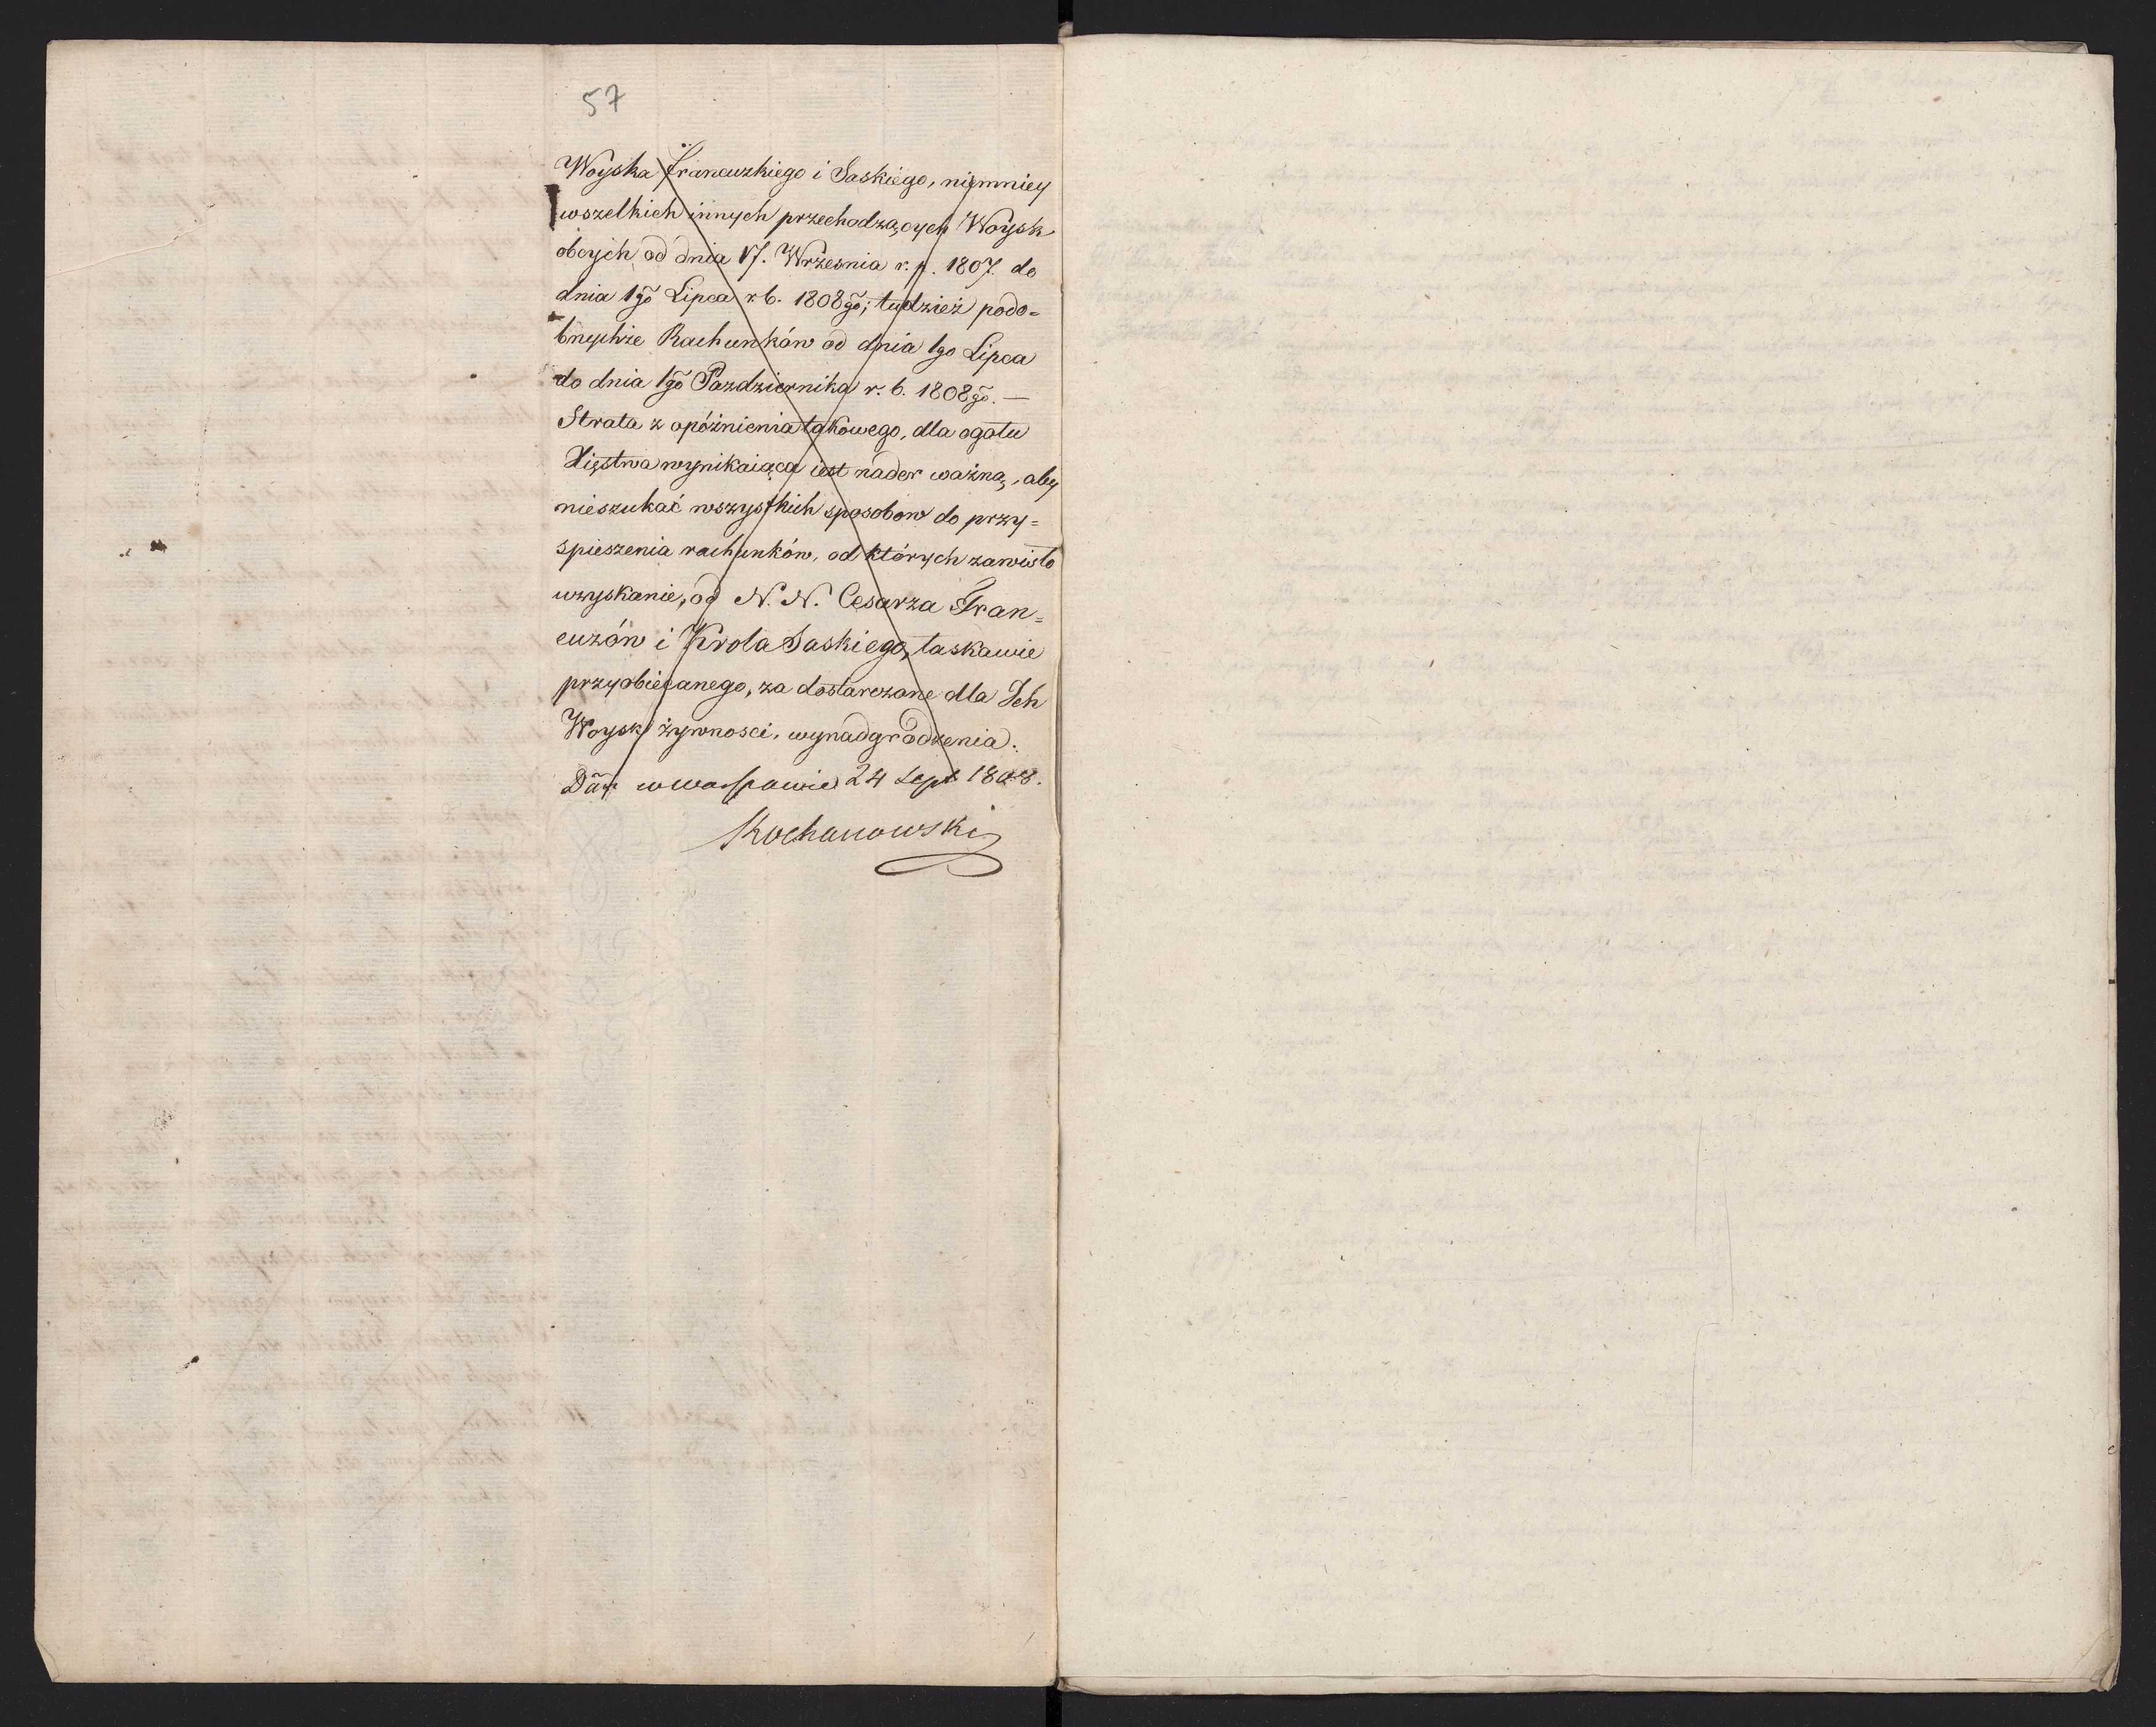 57
Woyska Francuzkiego i Saskiego, niemniey
wszelkich innych przechodzących Woysk
obcych od dnia 17. Września r. p. 1807. do
dnia 1go Lipca r. b. 1808go; tudzież podo=
bnychże Rachunków od dnia 1go Lipca
do dnia 1go Pazdziernika r. b. 1808go. —
Strata z opóżnienia takowego, dla ogołu
Xięstwa wynikaiąca iest nader ważną, aby
nieszukać wszystkich sposobow do przy=
spieszenia rachunków, od których zawisło
uzyskanie, od N. N. Cesarza Fran=
cuzów i Krola Saskiego, łaskawie
przyobiecanego, za dostarczane dla Ich
Woysk żywnosci, wynadgrodzenia.
Dań w Warszawie 24 Sept 1808.
Kochanowski